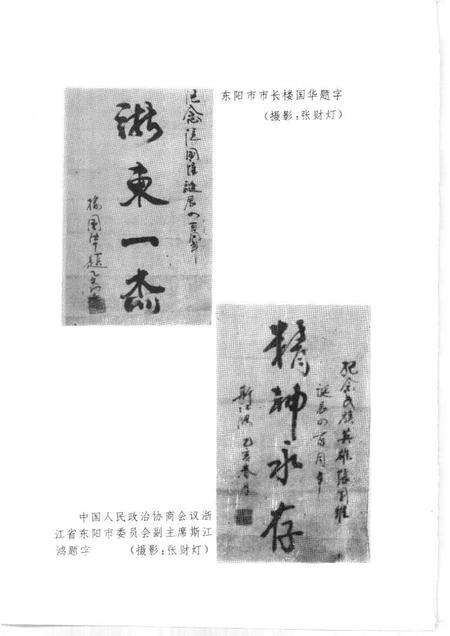 东阳市市长楼国华题字
(摄影:张财灯)
纪念张国维诞辰四百周年
浙东一杰
楼国华题
精神永存
纪念民族英雄张国维
诞辰四百周年
斯江鸿 乙亥春月
中国人民政治协商会议浙
江省东阳市委员会副主席斯江
鸿题字 (摄影:张财灯)